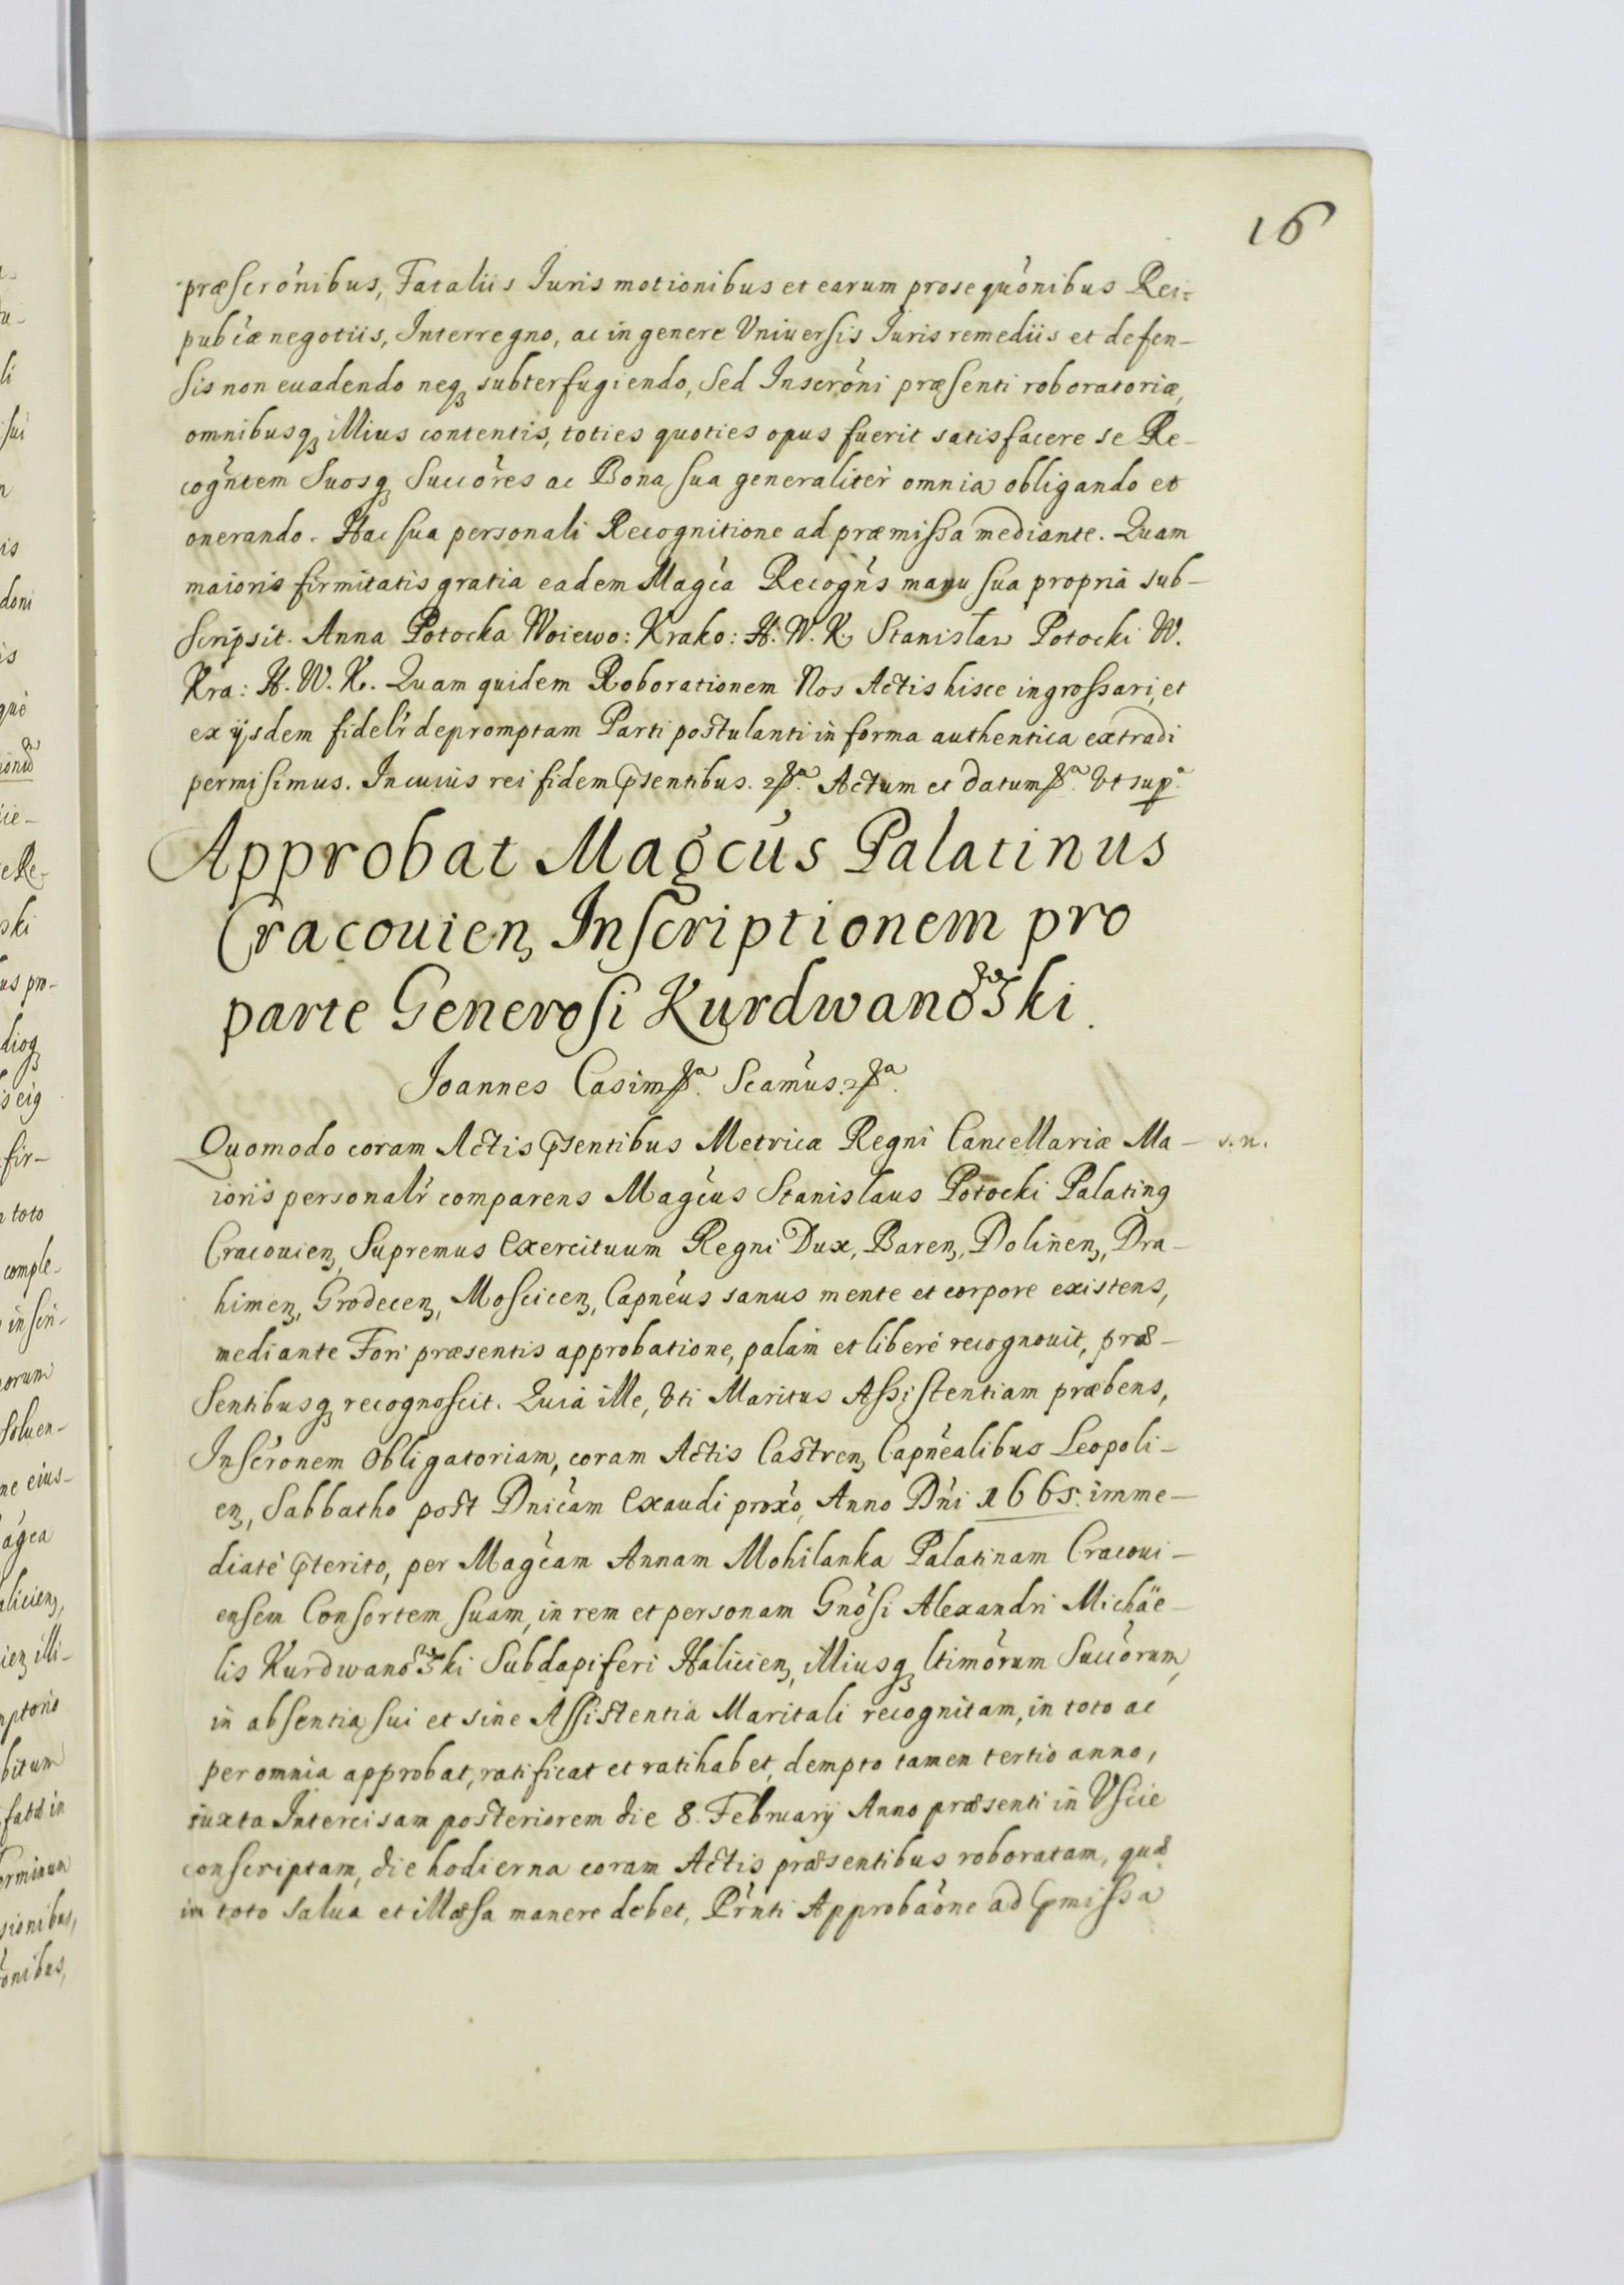 16
præscrõnibus, Fataliis Iuris motionibus et earum prosequõnibus Rei=
pubcæ negotiis, Interregno, ac in genere Vniuersis Iuris remediis et defen-
sis non euadendo neqʒ subterfugiendo, Sed Inscrõni præsenti roboratoriæ,
omnibusqʒ illius contentis, toties quoties opus fuerit satisfacere se Re-
cogñtem Suosqʒ Succõres ac Bona sua generalitèr omnia obligando et
onerando. Hac sua personali Recognitione ad præmissa mediante. Quam
maioris firmitatis gratia eadem Magca Recogns manu sua propria sub-
scripsit. Anna Potocka Woiewo: Krako: H. W. K. Stanisław Potocki W.
Kra: H. W. K. Quam quidem Roborationem Nos Actis hisce ingrossari, et
ex ijsdem fidelr depromptam Parti postulanti in forma authentica extradi
permisimus. In cuius rei fidem pñsentibus. Actum et datum Vt sup.
Approbat Magcus Palatinus
Cracouieñ, Inscriptionem pro
parte Generosi Kurdwanowski.
Ioannes Casim Scamus.
Quomodo coram Actis pñsentibus Metrica Regni Cancellariæ Ma- s.n.
ioris personalr comparens Magcus Stanislaus Potocki Palatinꝰ
Cracouienʒ, Supremus Exercituum Regni Dux, Barenʒ, Dolinenʒ, Dra-
himenʒ, Grodecenʒ, Moscicenʒ, Capneus sanus mente et corpore existens,
mediante Fori præsentis approbatione, palam et liberè recognouit, præ-
sentibusqʒ recognoscit. Quia ille, vti Maritus Assistentiam præbens,
Inscronem Obligatoriam, coram Actis Castrenʒ Capnealibus Leopoli-
enʒ, Sabbatho post Dnicam Exaudi proxo, Anno Dni 1665. imme-
diatè pterito, per Magcam Annam Mohilanka Palatinam Cracoui-
ensem Consortem suam, in rem et personam Gnosi Alexandri Michäe-
lis Kurdwanowski Subdapiferi Halicienʒ, illiusqʒ ltimorum Succorum,
in absentia sui et sine Assistentia Maritali recognitam, in toto ac
per omnia approbat, ratificat et ratihabet, dempto tamen tertio anno,
iuxta Intercisam posteriorem die 8. February Anno præsenti in Vscie
conscriptam, die hodierna coram Actis præsentibus roboratam, quæ
in toto salua et illæsa manere debet, Prnti Approbaõne ad pmissa